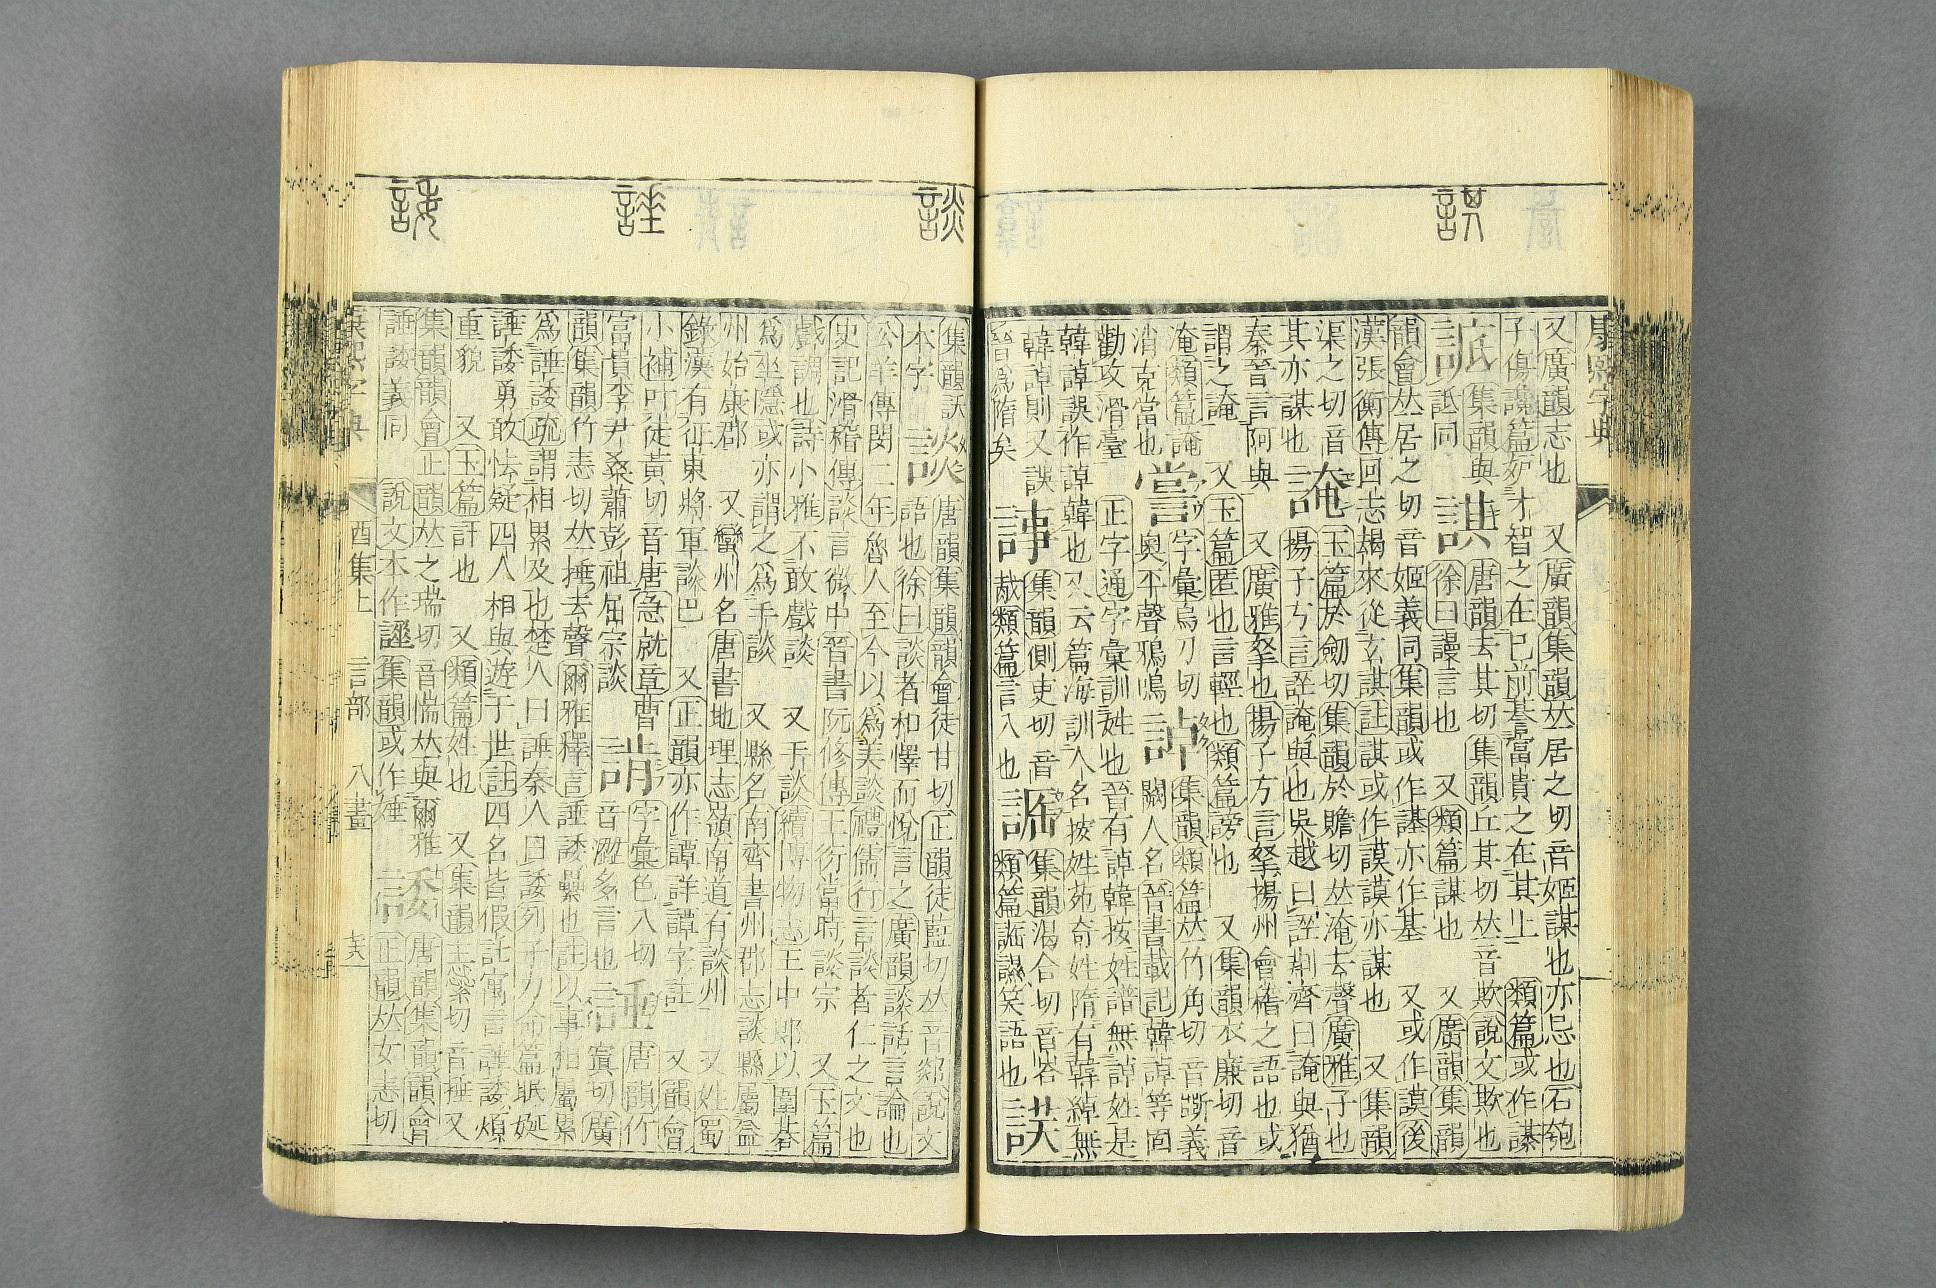 諆
康熙字典
又廣韻志也　又廣韻集韻𠀤居之切音姬謀也亦忌也石匏
子傷讒篇妒才智之在已前諅富貴之在其上　類篇或作諅
集韻與
詆同
諆
唐韻去其切集韻丘其切𠀤音欺說文欺也
徐曰謾言也　又類篇謀也　又廣韻集韻
韻會𠀤居之切音姬義同集韻或作諅亦作基　又或作謨後
漢張衡傳回志朅來從玄諆註諆或作謨謨亦謀也　又集韻
渠之切音
其亦謀也
䛳
玉篇於劒切集韻於贍切𠀤淹去聲廣雅予也
揚子方言誣䛳與也吳越曰誣荆齊曰䛳與猶
秦晉言阿與　又廣雅拏也揚子方言拏揚州會稽之語也或
謂之䛳　又玉篇匿也言輕也類篇謗也　又集韻衣廉切音
淹類篇䛳
消克當也
字彙烏刀切
奧平聲鴉鳴
諄
集韻類篇𠀤竹角切音斲義
闕人名晉書載記韓諄等固
勸攻滑臺　正字通字彙訓姓也晉有諄韓按姓譜無諄姓是
韓諄誤作諄韓也又云篇海訓人名按姓苑奇姓隋有韓綽無
韓諄則又誤
晉爲隋矣
集韻側吏切音
胾類篇言入也
集韻渴合切音
類篇笑語也
集韻
本字
談
談
唐韻集韻韻會徒甘切正韻徒藍切𠀤音郯說文
語也徐曰談者和懌而悅言之廣韻談話言論也
公羊傳閔二年魯人至今以爲美談禮儒行言談者仁之文也
史記滑稽傳談言微中晉書阮修傳王衍當時談宗　又玉篇
戲調也詩小雅不敢戲談　又手談續博物志王中郎以圍棊
爲坐隱或亦謂之爲手談　又縣名南齊書州郡志談縣屬益
州始康郡　又蠻州名唐書地理志嶺南道有談州　又姓蜀
錄漢有征東將軍談巴　又正韻亦作譚詳譚字註　又韻會
小補叶徒黃切音唐急就章曹
富貴李尹桑蕭彭祖屈宗談
字彙色入切
音澀多言也
諈
諈
唐韻竹
寘切廣
韻集韻竹恚切𠀤捶去聲爾雅釋言諈諉纍也註以事相屬累
爲諈諉疏謂相累及也楚人曰諈秦人曰諉列子力命篇眠娗
諈諉勇敢怯疑四人相與遊于世註四名皆假託寓言諈諉煩
重貌　又玉篇託也　又類篇姓也　又集韻主橤切音捶又
集韻韻會正韻𠀤之瑞切音惴𠀤與爾雅
諈諉義同　說文本作諈集韻或作娷
諉
諉
唐韻集韻韻會
正韻𠀤女恚切
康熙字典
酉集上　言部　八畫